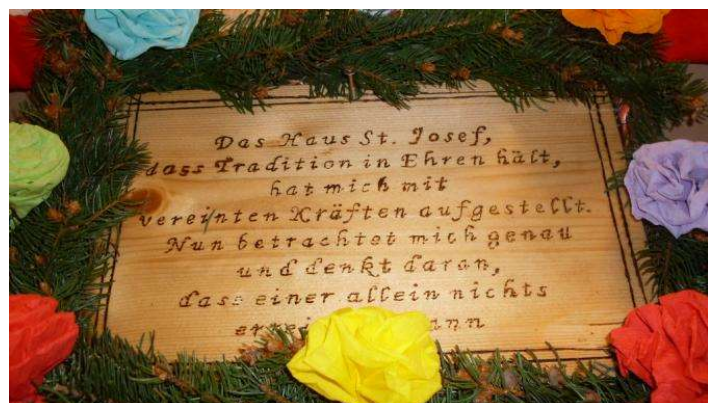 Das Haus St. Josef,
dass Tradition in Ehren hält,
hat mich mit
vereinten Kräften aufgestellt.
Nun betrachtet mich genau
und denkt daran,
dass einer allein nichts